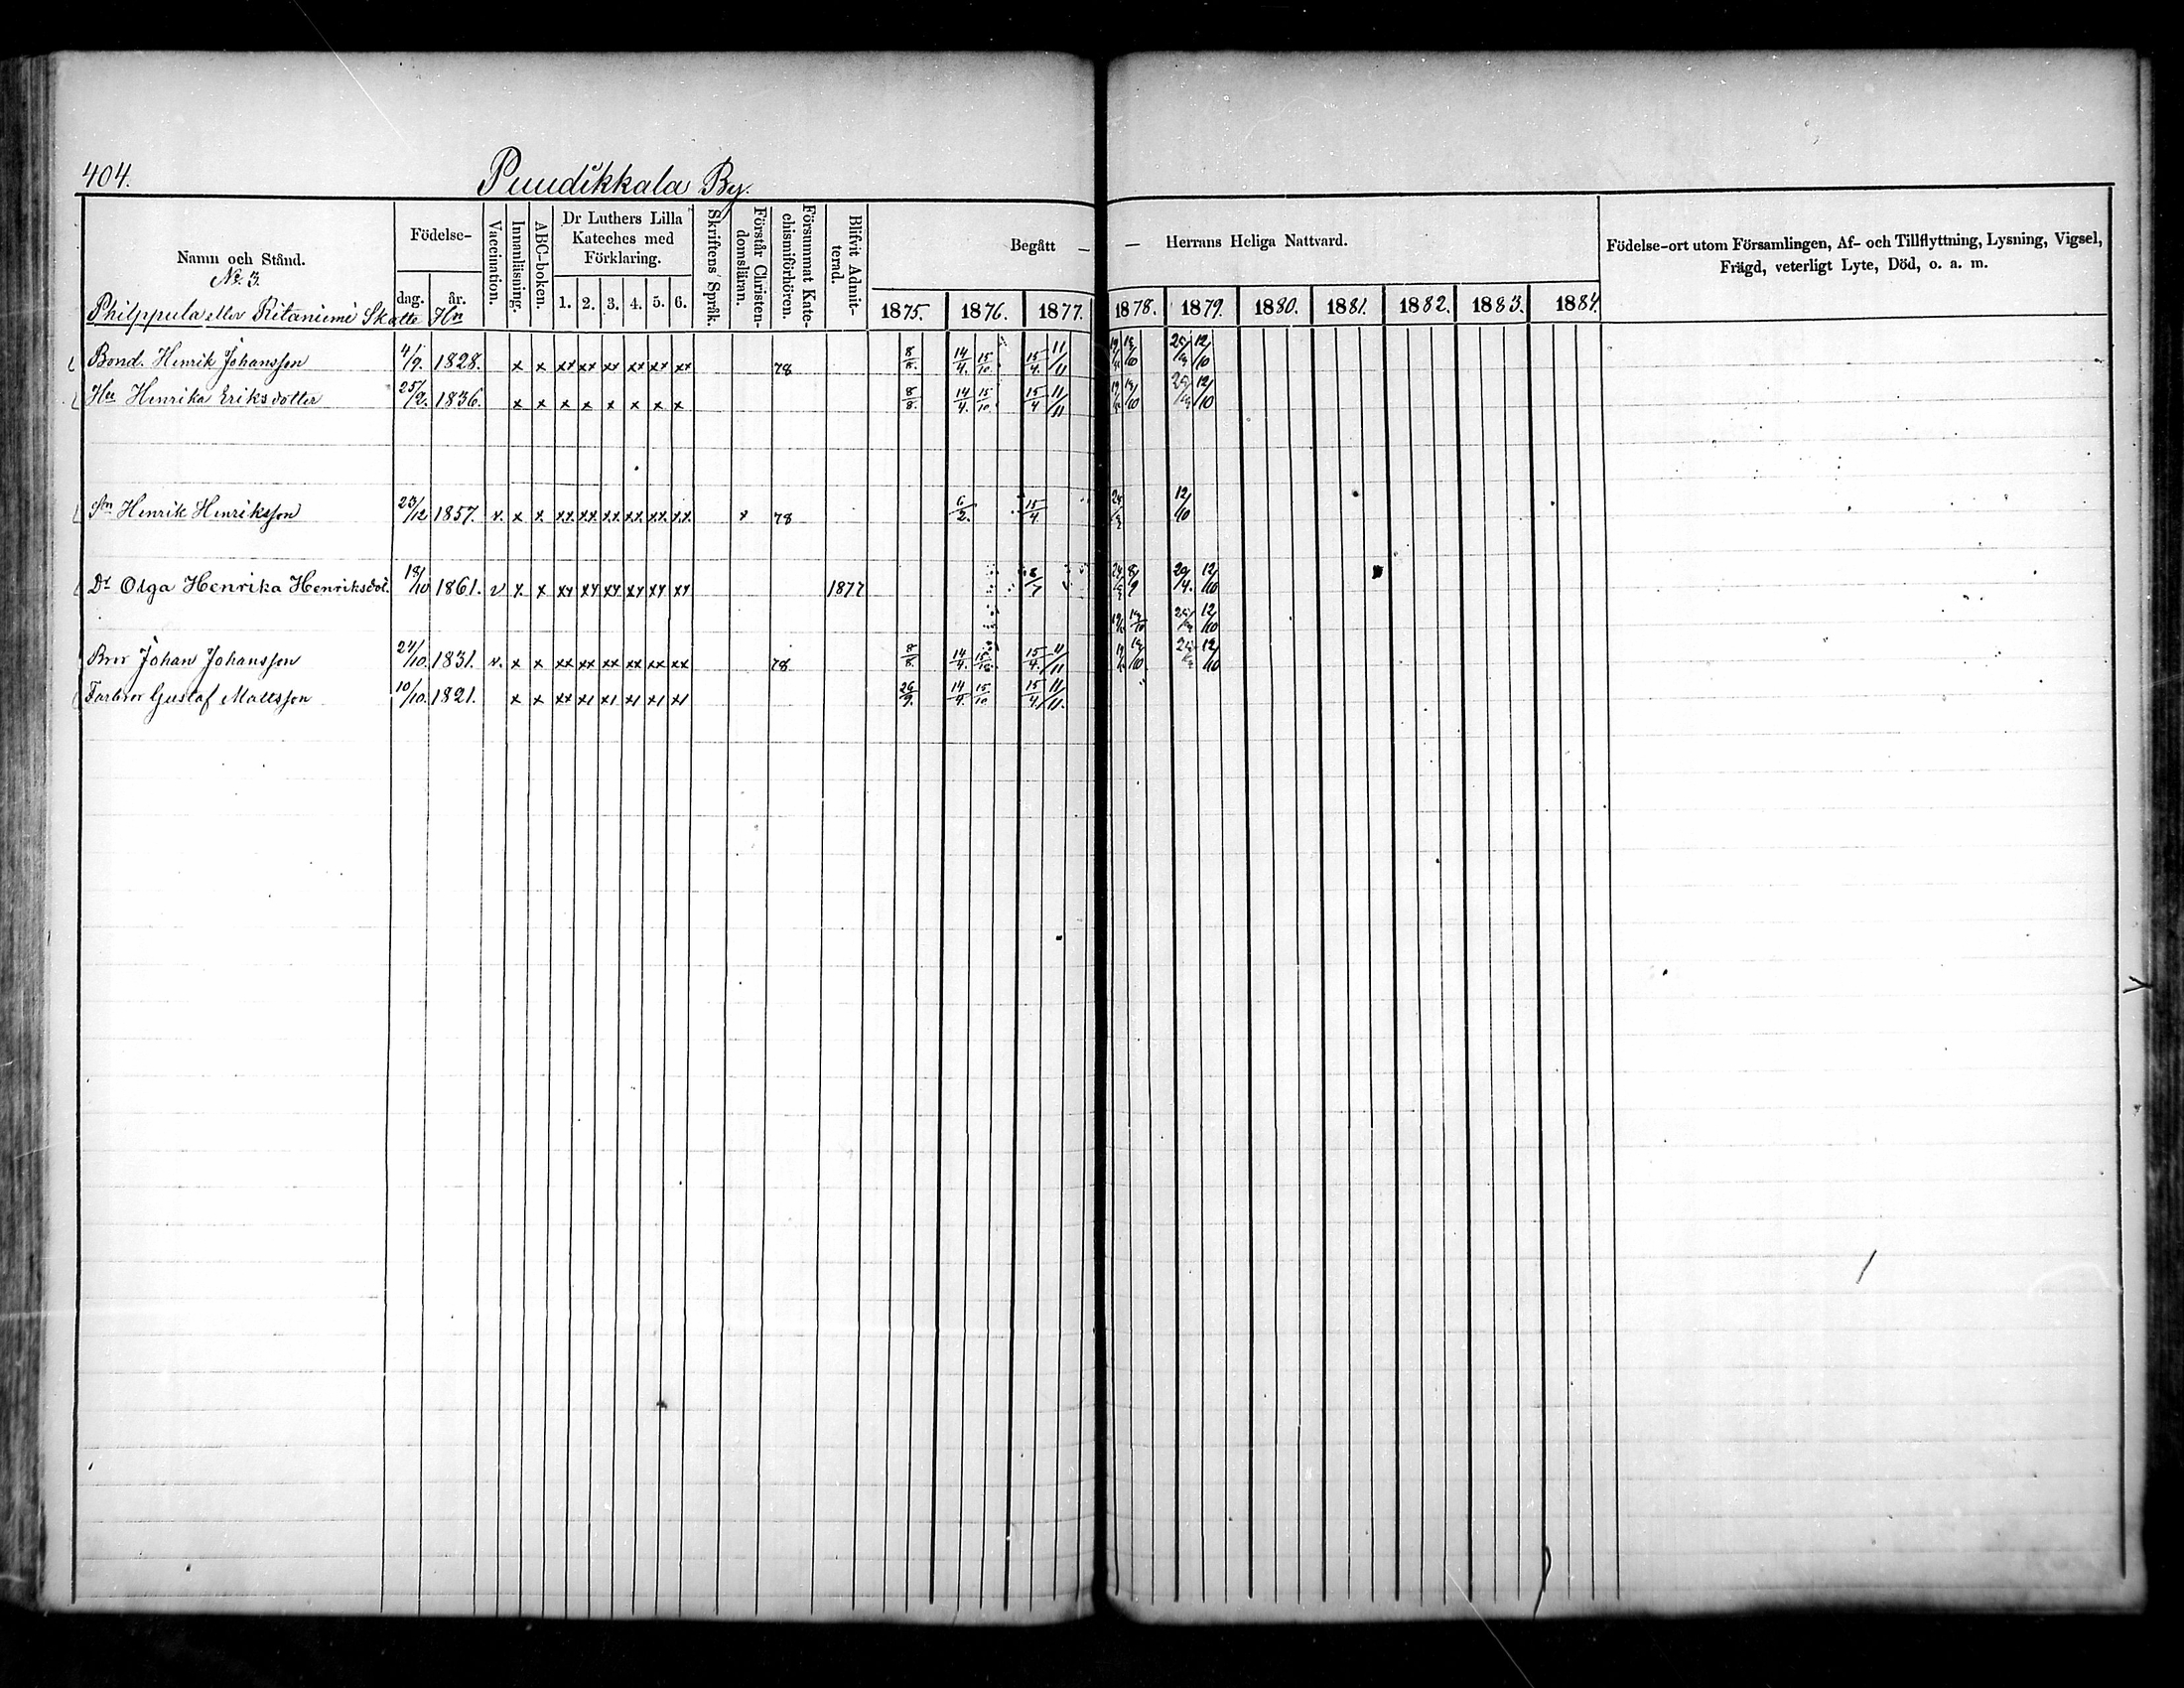 404.
Puudikkala By.
Namn och Stånd.
No 3.
Philppula eller Ritaniemi Skatte Hn
Födelse-
dag. år.
Vaccination.
Innanläsning.
ABC-boken.
Dr Luthers Lilla
Kateches med
Förklaring.
1. 2. 3. 4. 5. 6.
Skriftens Språk.
Förstår Christen-
domsläran.
Försummat Kate-
chismiförhören.
Blifvit Admit-
terad.
Begått — — Herrans Heliga Nattvard.
1875. 1876. 1877. 1878. 1879. 1880. 1881. 1882. 1883. 1884.
Födelse-ort utom Församlingen, Af- och Tillflyttning, Lysning, Vigsel,
Frägd, veterligt Lyte, Död, o. a. m.
Bond. Henrik Johansson 4/9. 1828. x x xx xx xx xx xx xx 78 8/8. 14/4. 15/10. 15/4. 11/11 12/10
Hu Henrika Eriksdotter 25/2. 1836. x x x x x x x x 8/8. 14/4. 15/10 15/4 11/11 12/10
Sn Henrik Henriksson 23/12 1857. v. x x xx xx xx xx xx xx x 78 6/2. 15/4. 12/10
Dr Olga Henrika Henriksdot. 18/10 1861. v x x xx xx xx xx xx xx 1877 8/7 8/9 29/4. 12/10
12/10
Bror Johan Johansson 24/10. 1831. v. x x xx xx xx xx xx xx 78 8/8. 14/4. 15/10 15/4. 11/11 12/10
Farbror Gustaf Mattsson 10/10. 1821. x x xx x1 x1 x1 x1 x1 26/9. 14/4. 15/10 15/4 11/11.